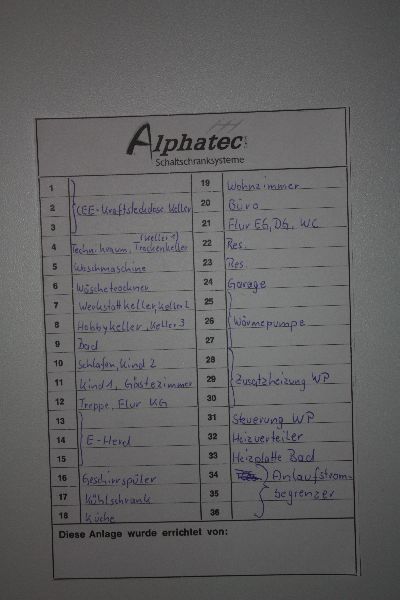 Alphatec
Schaltschranksysteme
1
2 CEE-Kraftsteckdose Keller
3
(Keller 1)
4 Technikraum, Trockenkeller
5 Waschmaschine
6 Wäschetrockner
7 Werkstattkeller, Keller 2
8 Hobbykeller, Keller 3
9 Bad
10 Schlafen, Kind 2
11 Kind 1, Gästezimmer
12 Treppe, Flur KG
13
14 E-Herd
15
16 Geschirrspüler
17 Kühlschrank
18 Küche
19 Wohnzimmer
20 Büro
21 Flur EG, DG, WC
22 Res.
23 Res.
24 Garage
25
26 Wärmepumpe
27
28
29 Zusatzheizung WP
30
31 Steuerung WP
32 Heizverteiler
33 Heizplatte Bad
34 Anlaufstrom-
35 begrenzer
36
Diese Anlage wurde errichtet von: